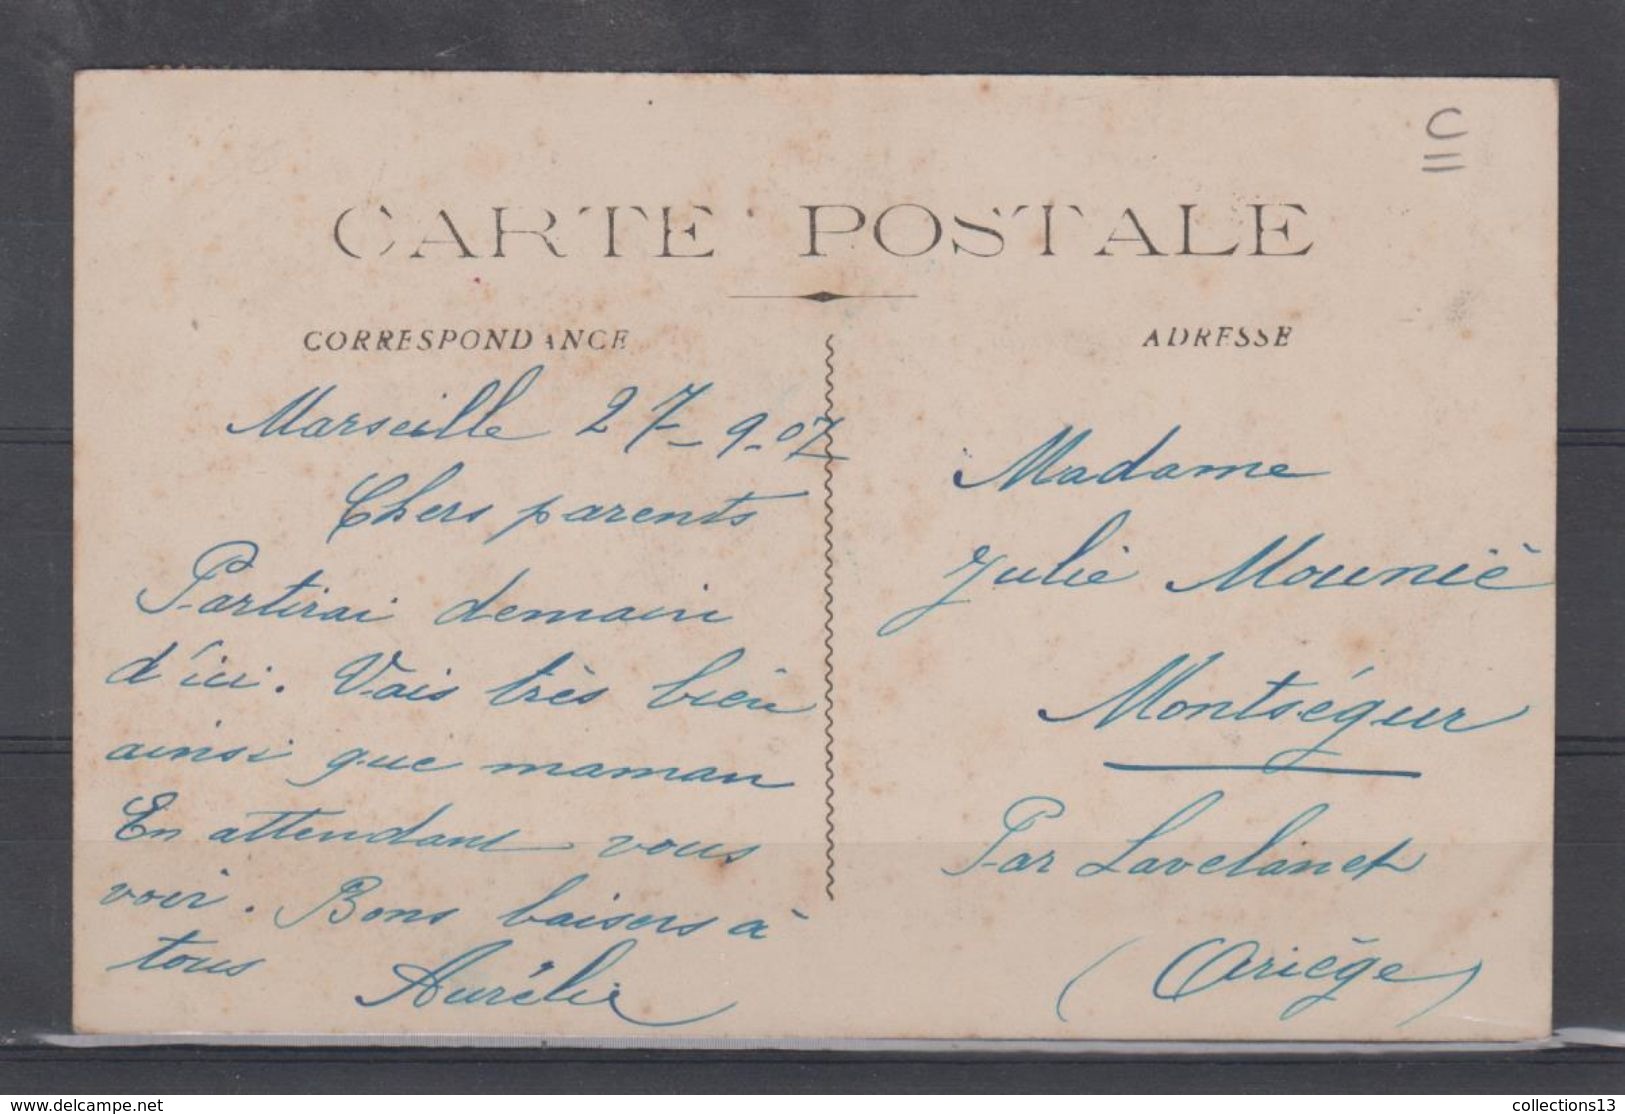 C
CARTE POSTALE
CORRESPONDANCE
Marseille 27-9-07
Chers parents
Partirai demain
d'ici. Vais très bien
ainsi que maman
En attendant vous
voir. Bons baisers à
tous Aurélie
ADRESSE
Madame
Julie Mounié
Montségur
Par Lavelanet
(Ariège)
www.delcampe.net
collections13